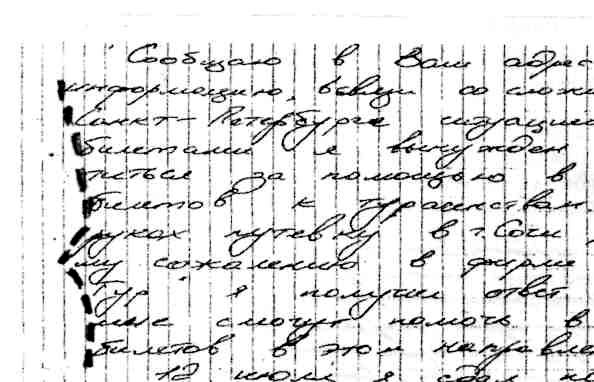 Сообщаю в Ваш адрес
информацию, всвязи со сложи
Санкт-Петербурге ситуацией
билетами я вынужден
титься за помощью в
билетов к турагенствам.
руках путевку в г. Сочи
му сожалению в фирме
Тур" я получил ответ
мне смогут помочь в
билетов в этом направле
12 июля я сдал